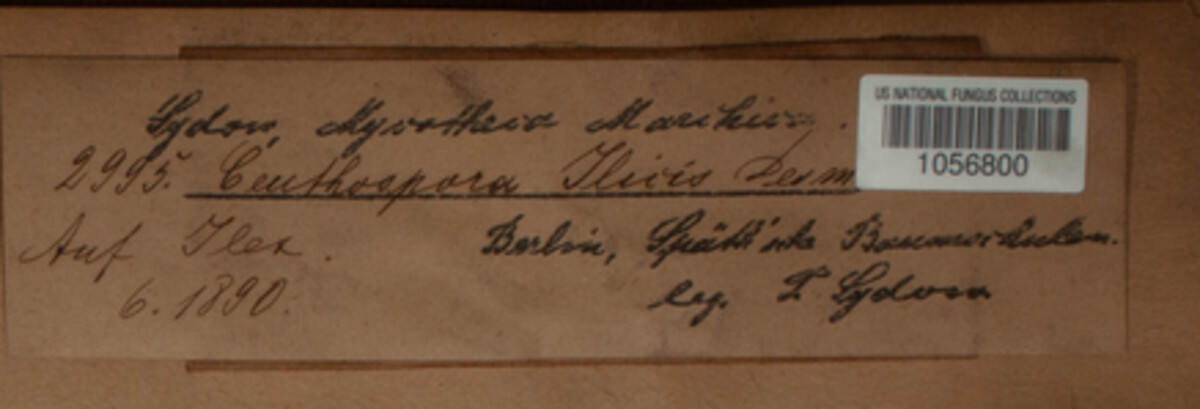 Sydow, Mycotheca Marchica.
US NATIONAL FUNGUS COLLECTIONS
1056800
2995. Ceuthospora Ilicis Desm
Auf Ilex.
Berlin, Späth'sche Baumschulen.
6. 1890.
leg. P. Sydow